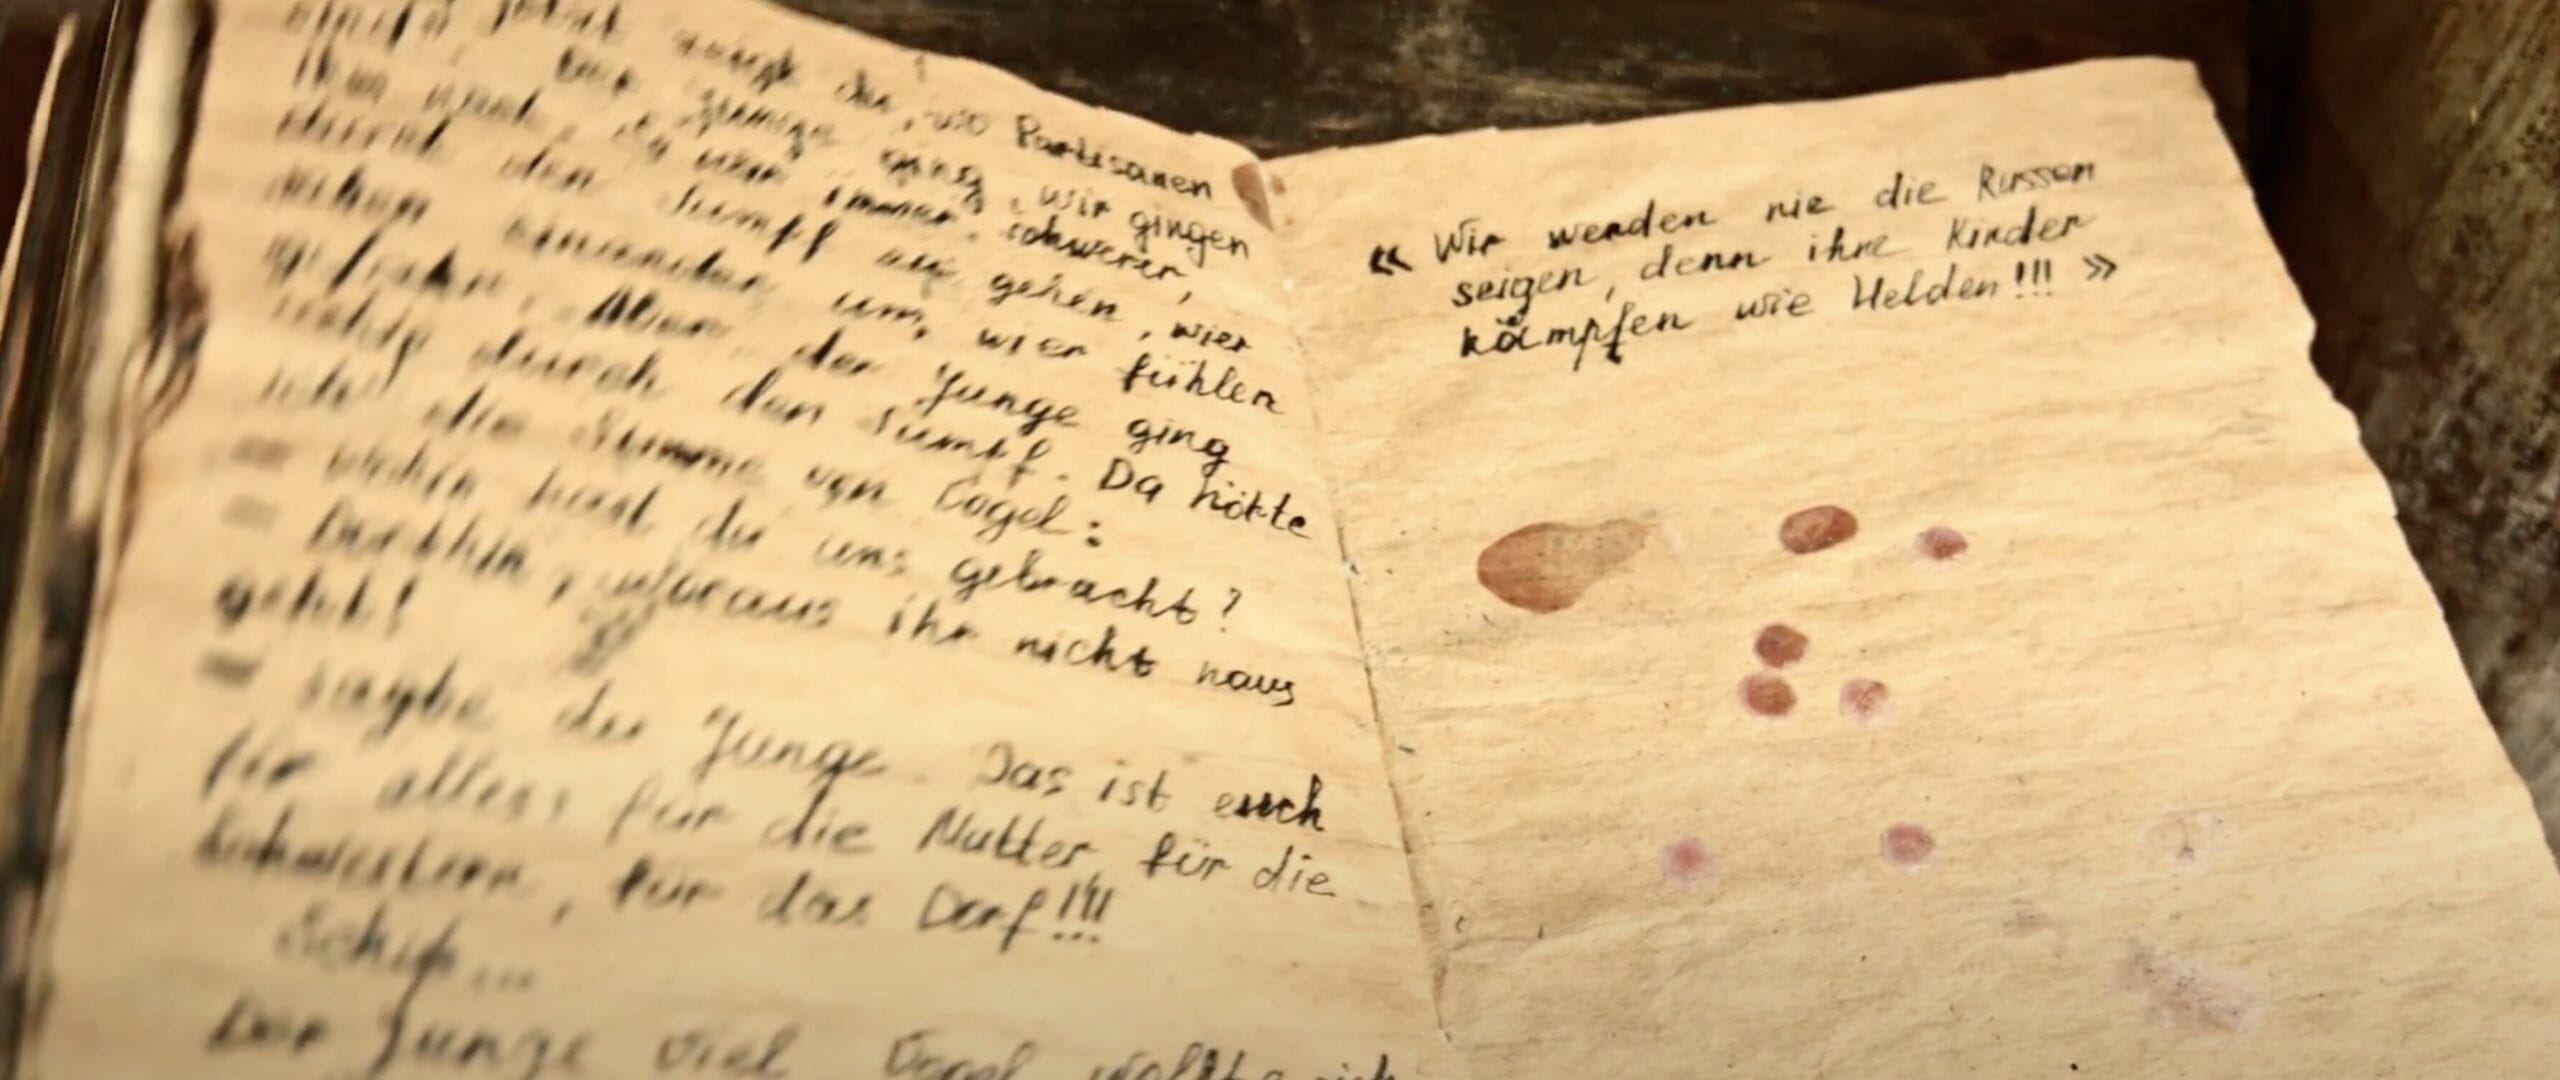 Partisanen
Der Junge ging, wir gingen
ihm nach, es war immer schwerer,
durch den Sumpf zu gehen, wier
sahen einander um, wier fühlen
gefahr. Aber der Junge ging
ruhig durch den Sumpf. Da hörte
ich die Stimme von Cogel:
- wohin hast du uns gebracht?
- Dorthin, woraus ihr nicht naus
geht!
- sagte der Junge. Das ist euch
für alles, für die Mutter, für die
Schwestern, für das Dorf!!!
Schuß...
Der Junge viel Cogel wollte sich
« Wir werden nie die Russen
seigen, denn ihre Kinder
kämpfen wie Helden!!! »